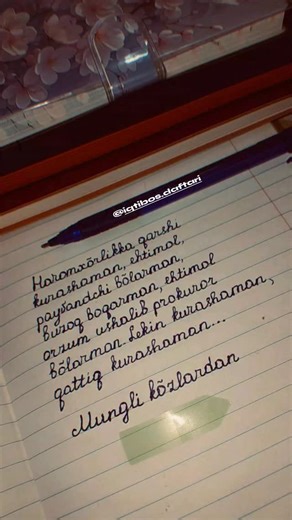 @iqtibos.daftari
Haromxõrlikka qarshi
kurashaman, ehtimol,
paysandchi bõlarman,
buzoq boqarman, ehtimol
orzum ushalib prokuror
bõlarman. Lekin kurashaman,
qattiq kurashaman...
Mungli kõzlardan